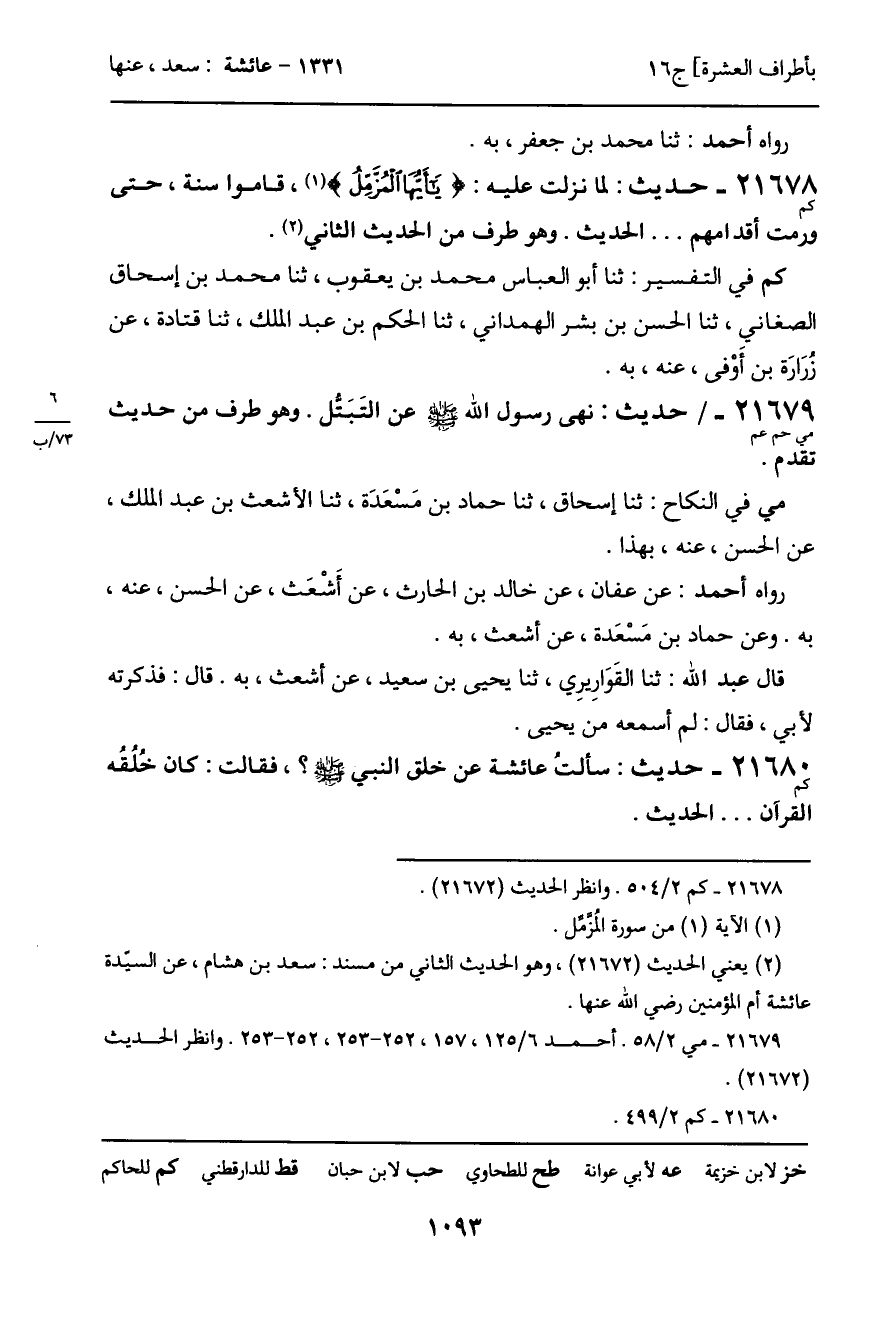 بأطراف العشرة] ج١٦ ١٣٣١ - عائشة : سعد ، عنها
رواه أحمد : ثنا محمد بن جعفر ، به .
٢١٦٧٨ ـ حديث : لما نزلت عليه : ﴿ يَٰٓأَيُّهَا ٱلْمُزَّمِّلُ ﴾(١) ، قاموا سنة ، حتى
كم
ورمت أقدامهم . . . الحديث . وهو طرف من الحديث الثاني(٢) .
كم في التفسير : ثنا أبو العباس محمد بن يعقوب ، ثنا محمد بن إسحاق
الصغاني ، ثنا الحسن بن بشر الهمداني ، ثنا الحكم بن عبد الملك ، ثنا قتادة ، عن
زُرَارَة بن أَوْفى ، عنه ، به .
٢١٦٧٩ ـ / حديث : نهى رسول الله ﷺ عن التَبَتُّل . وهو طرف من حديث
مي حم عم
٦
٧٣/ب
تقدم .
مي في النكاح : ثنا إسحاق ، ثنا حماد بن مَسْعَدَة ، ثنا الأشعث بن عبد الملك ،
عن الحسن ، عنه ، بهذا .
رواه أحمد : عن عفان ، عن خالد بن الحارث ، عن أَشْعَث ، عن الحسن ، عنه ،
به . وعن حماد بن مَسْعَدة ، عن أشعث ، به .
قال عبد الله : ثنا القَوَارِيرِي ، ثنا يحيى بن سعيد ، عن أشعث ، به . قال : فذكرته
لأبي ، فقال : لم أسمعه من يحيى .
٢١٦٨٠ ـ حديث : سألتُ عائشة عن خلق النبي ﷺ ؟ ، فقالت : كان خُلُقُه
كم
القرآن . . . الحديث .
٢١٦٧٨ ـ كم ٥٠٤/٢ . وانظر الحديث (٢١٦٧٢) .
(١) الآية (١) من سورة المُزَّمِّل .
(٢) يعني الحديث (٢١٦٧٢) ، وهو الحديث الثاني من مسند : سعد بن هشام ، عن السيّدة
عائشة أم المؤمنين رضي الله عنها .
٢١٦٧٩ ـ مي ٥٨/٢ . أحمد ١٢٥/٦ ، ١٥٧ ، ٢٥٢-٢٥٣ ، ٢٥٢-٢٥٣ . وانظر الحديث
(٢١٦٧٢) .
٢١٦٨٠ ـ كم ٤٩٩/٢ .
خز لابن خزيمة عه لأبي عوانة طح للطحاوي حب لابن حبان قط للدارقطني كم للحاكم
١٠٩٣